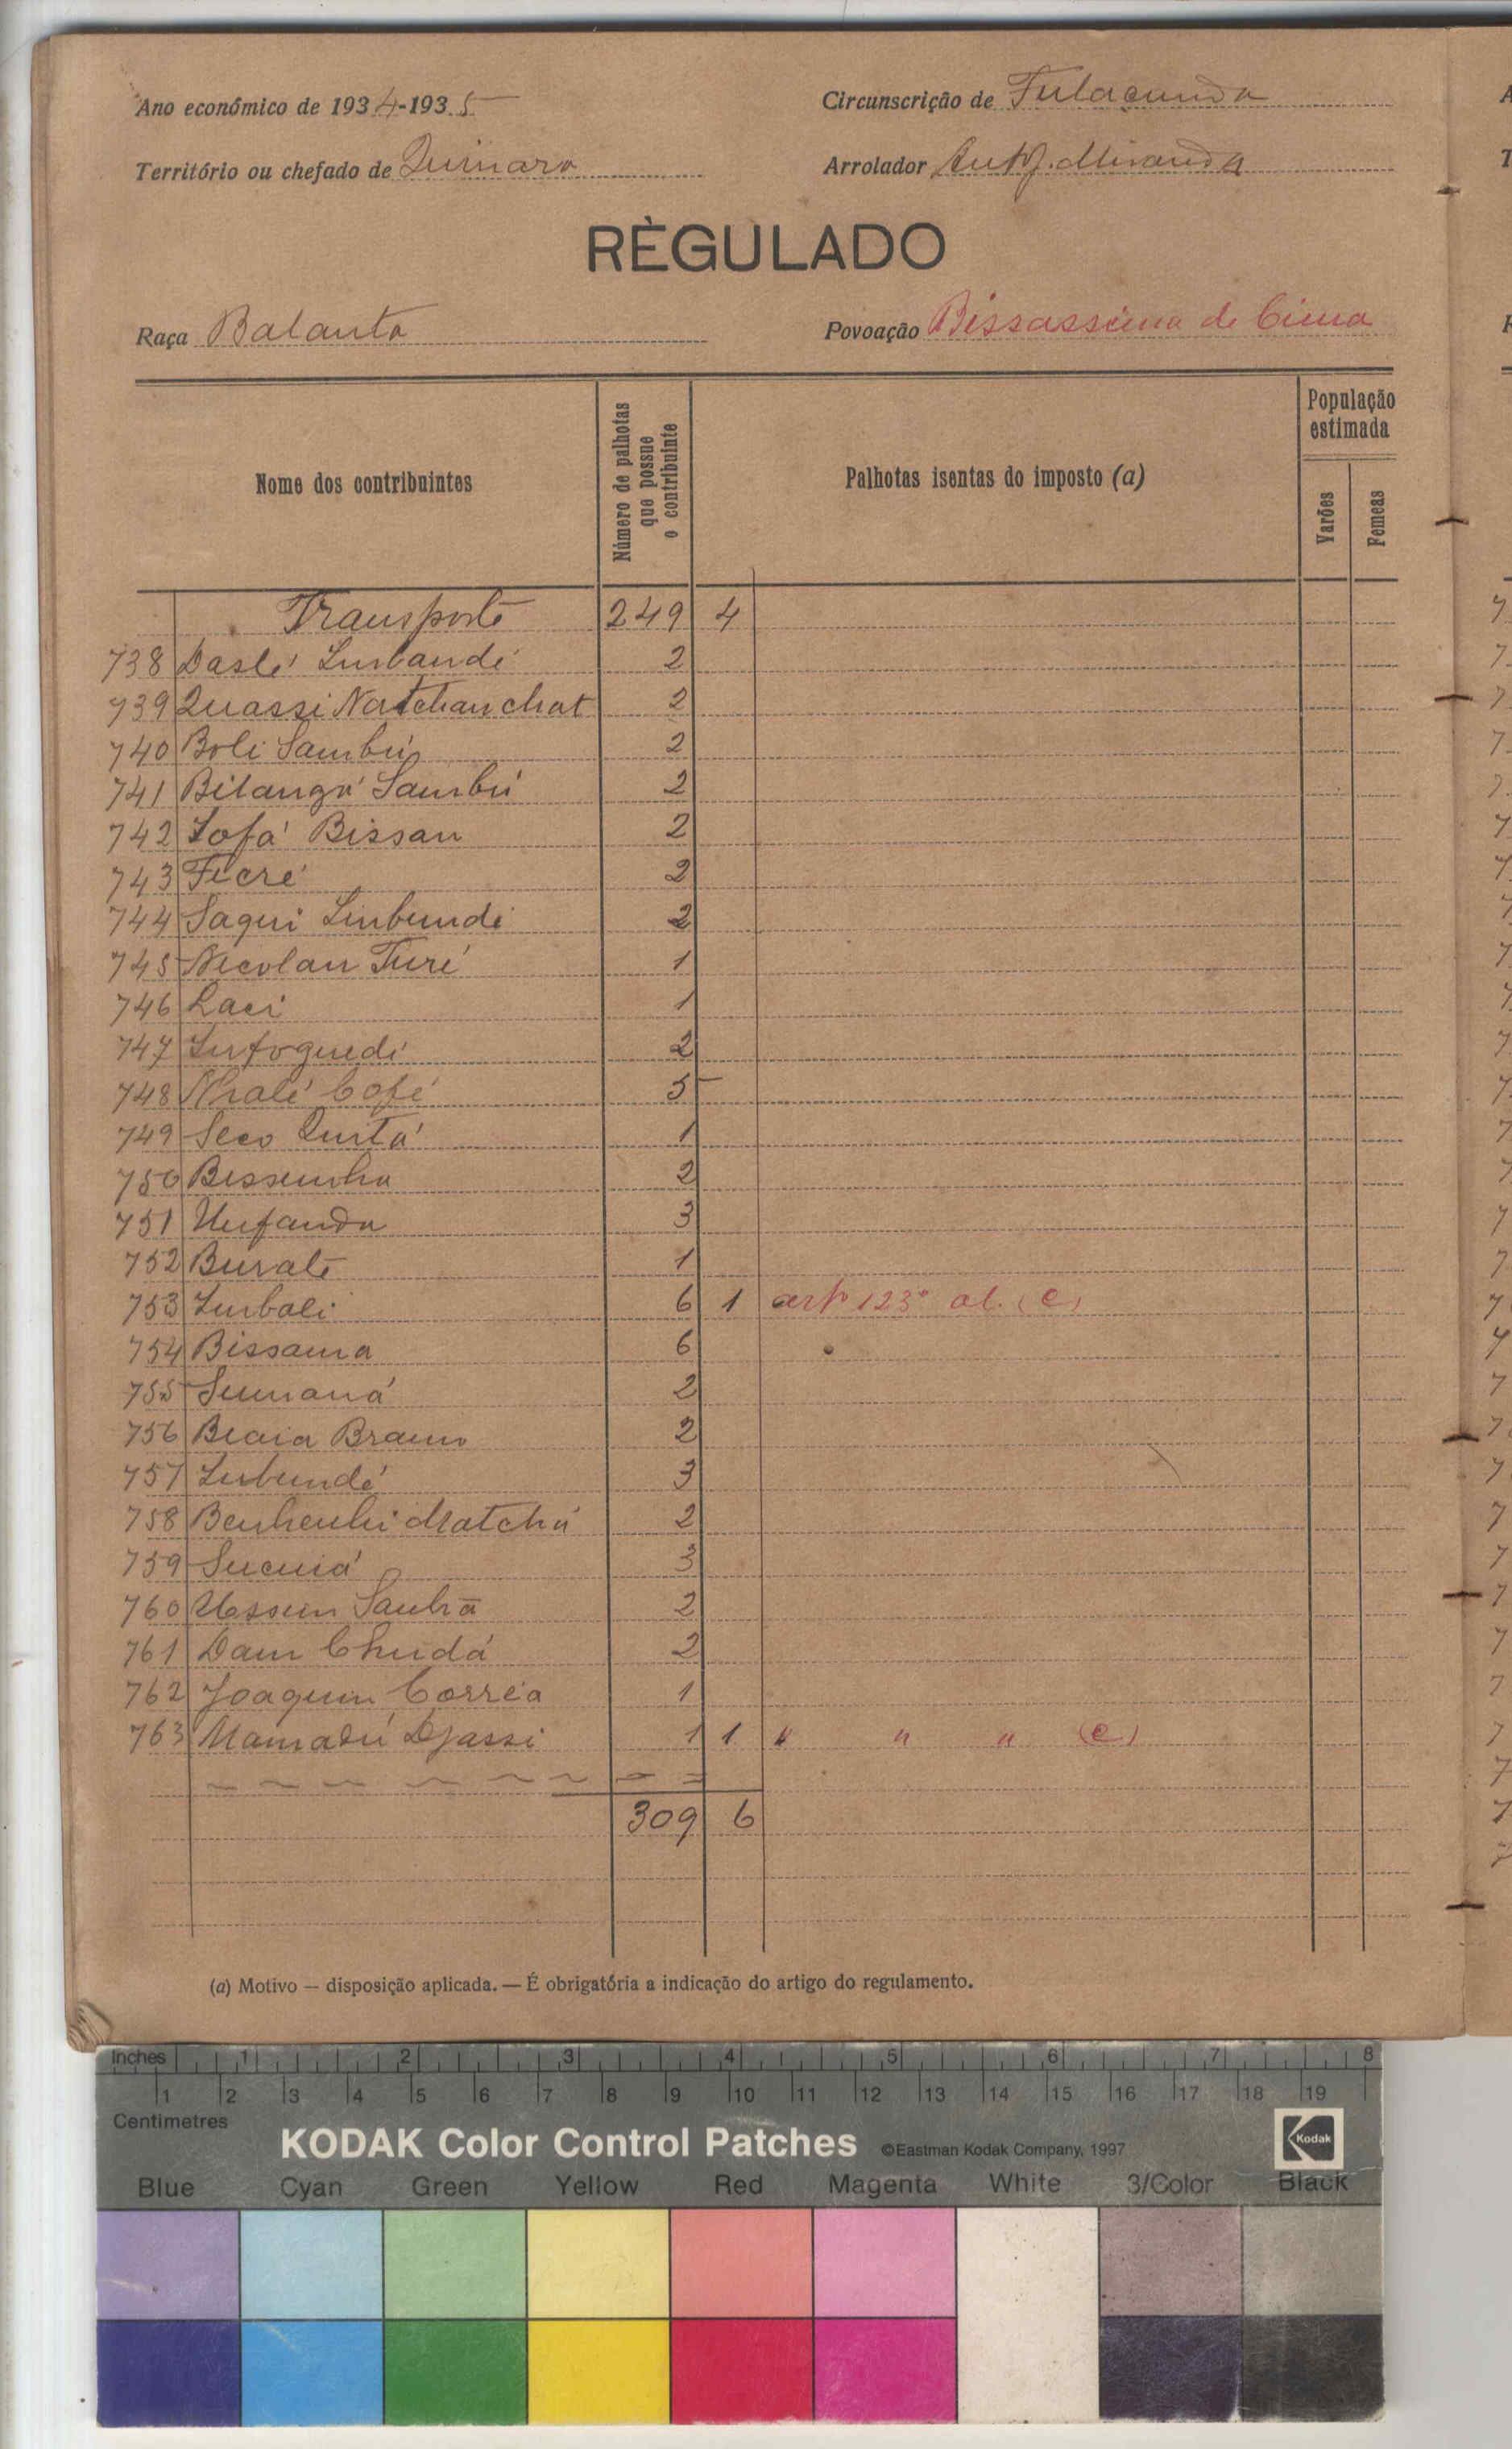 Ano económico de 1934-1935
Circunscrição de Fulacunda
Território ou chefado de Quinara
Arrolador Antº J. Miranda
RÈGULADO
Raça Balanta
Povoação Bissassema de Cima
Nome dos contribuintes
Número de palhotas que possue o contribuinte
Palhotas isentas do imposto (a)
População estimada
Varões
Femeas
Transporte 249 4
738 2
739 Quassi Natchanchat 2
740 Boli Sambú 2
741 Bilangá Sambú 2
742 Bissan 2
743 2
744 Saqui 2
745 Nicolau Turé 1
746 Laci 1
747 2
748 Nhalé Cofé 5
749 Seco Quntá 1
750 2
751 Unfanda 3
752 Burate 1
753 6 1 artº 123º al. (e)
754 Bissama 6
755 2
756 Beaia 2
757 3
758 Matchá 2
759 3
760 2
761 Dam Chudá 2
762 Joaquim Corrêa 1
763 Mamadú Djassi 1 1 " " " (e)
309 6
(a) Motivo — disposição aplicada. — É obrigatória a indicação do artigo do regulamento.
Inches 1 2 3 4 5 6 7 8
1 2 3 4 5 6 7 8 9 10 11 12 13 14 15 16 17 18 19
Centimetres
KODAK Color Control Patches ©Eastman Kodak Company, 1997 Kodak
Blue Cyan Green Yellow Red Magenta White 3/Color Black